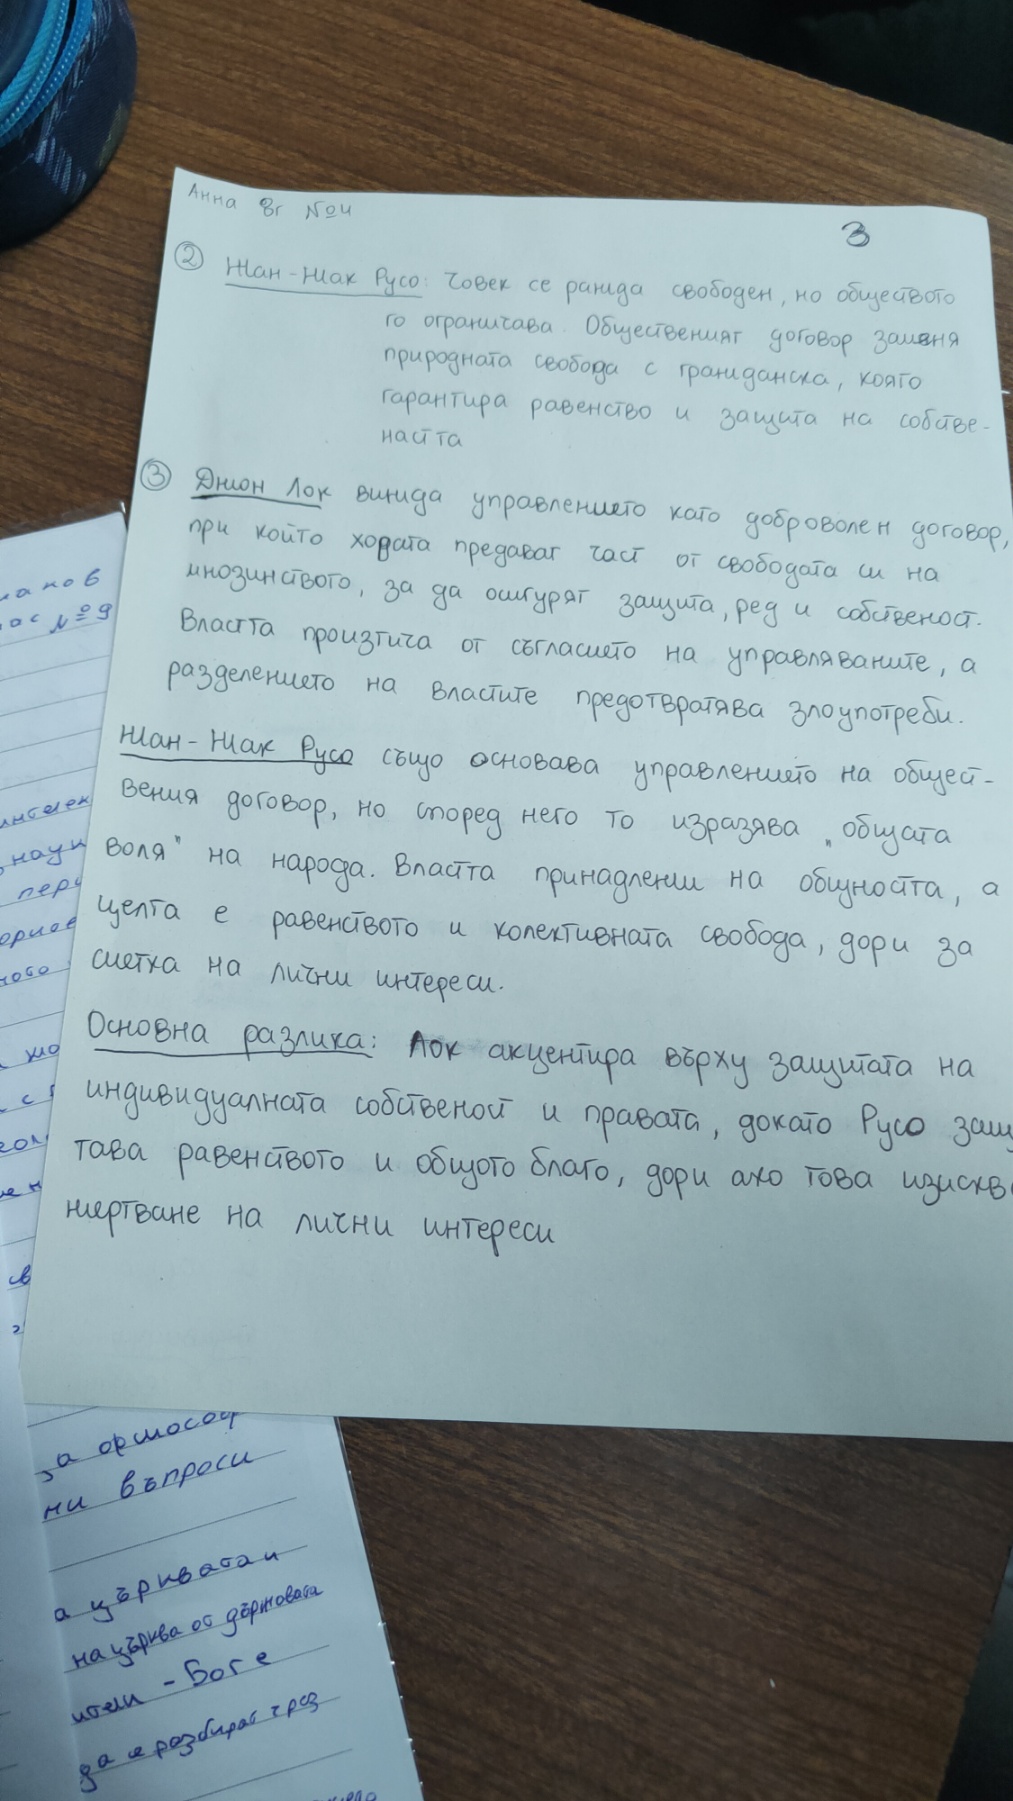 Анна 8г №4
3
② Жан-Жак Русо: Човек се ражда свободен, но обществото
го ограничава. Общественият договор заменя
природната свобода с гражданска, която
гарантира равенство и защита на собстве-
ността
③ Джон Лок вижда управлението като доброволен договор,
при който хората предават част от свободата си на
мнозинството, за да осигурят защита, ред и собственост.
Властта произтича от съгласието на управляваните, а
разделението на властите предотвратява злоупотреби.
Жан-Жак Русо също основава управлението на общест-
вения договор, но според него то изразява „общата
воля" на народа. Властта принадлежи на общността, а
целта е равенството и колективната свобода, дори за
сметка на лични интереси.
Основна разлика: Лок акцентира върху защитата на
индивидуалната собственост и правата, докато Русо защ
тава равенството и общото благо, дори ако това изискв
жертване на лични интереси
№9
наук
ни въпроси
а църквата и
на църква от държавата
- Бог е
да се разбират чрез